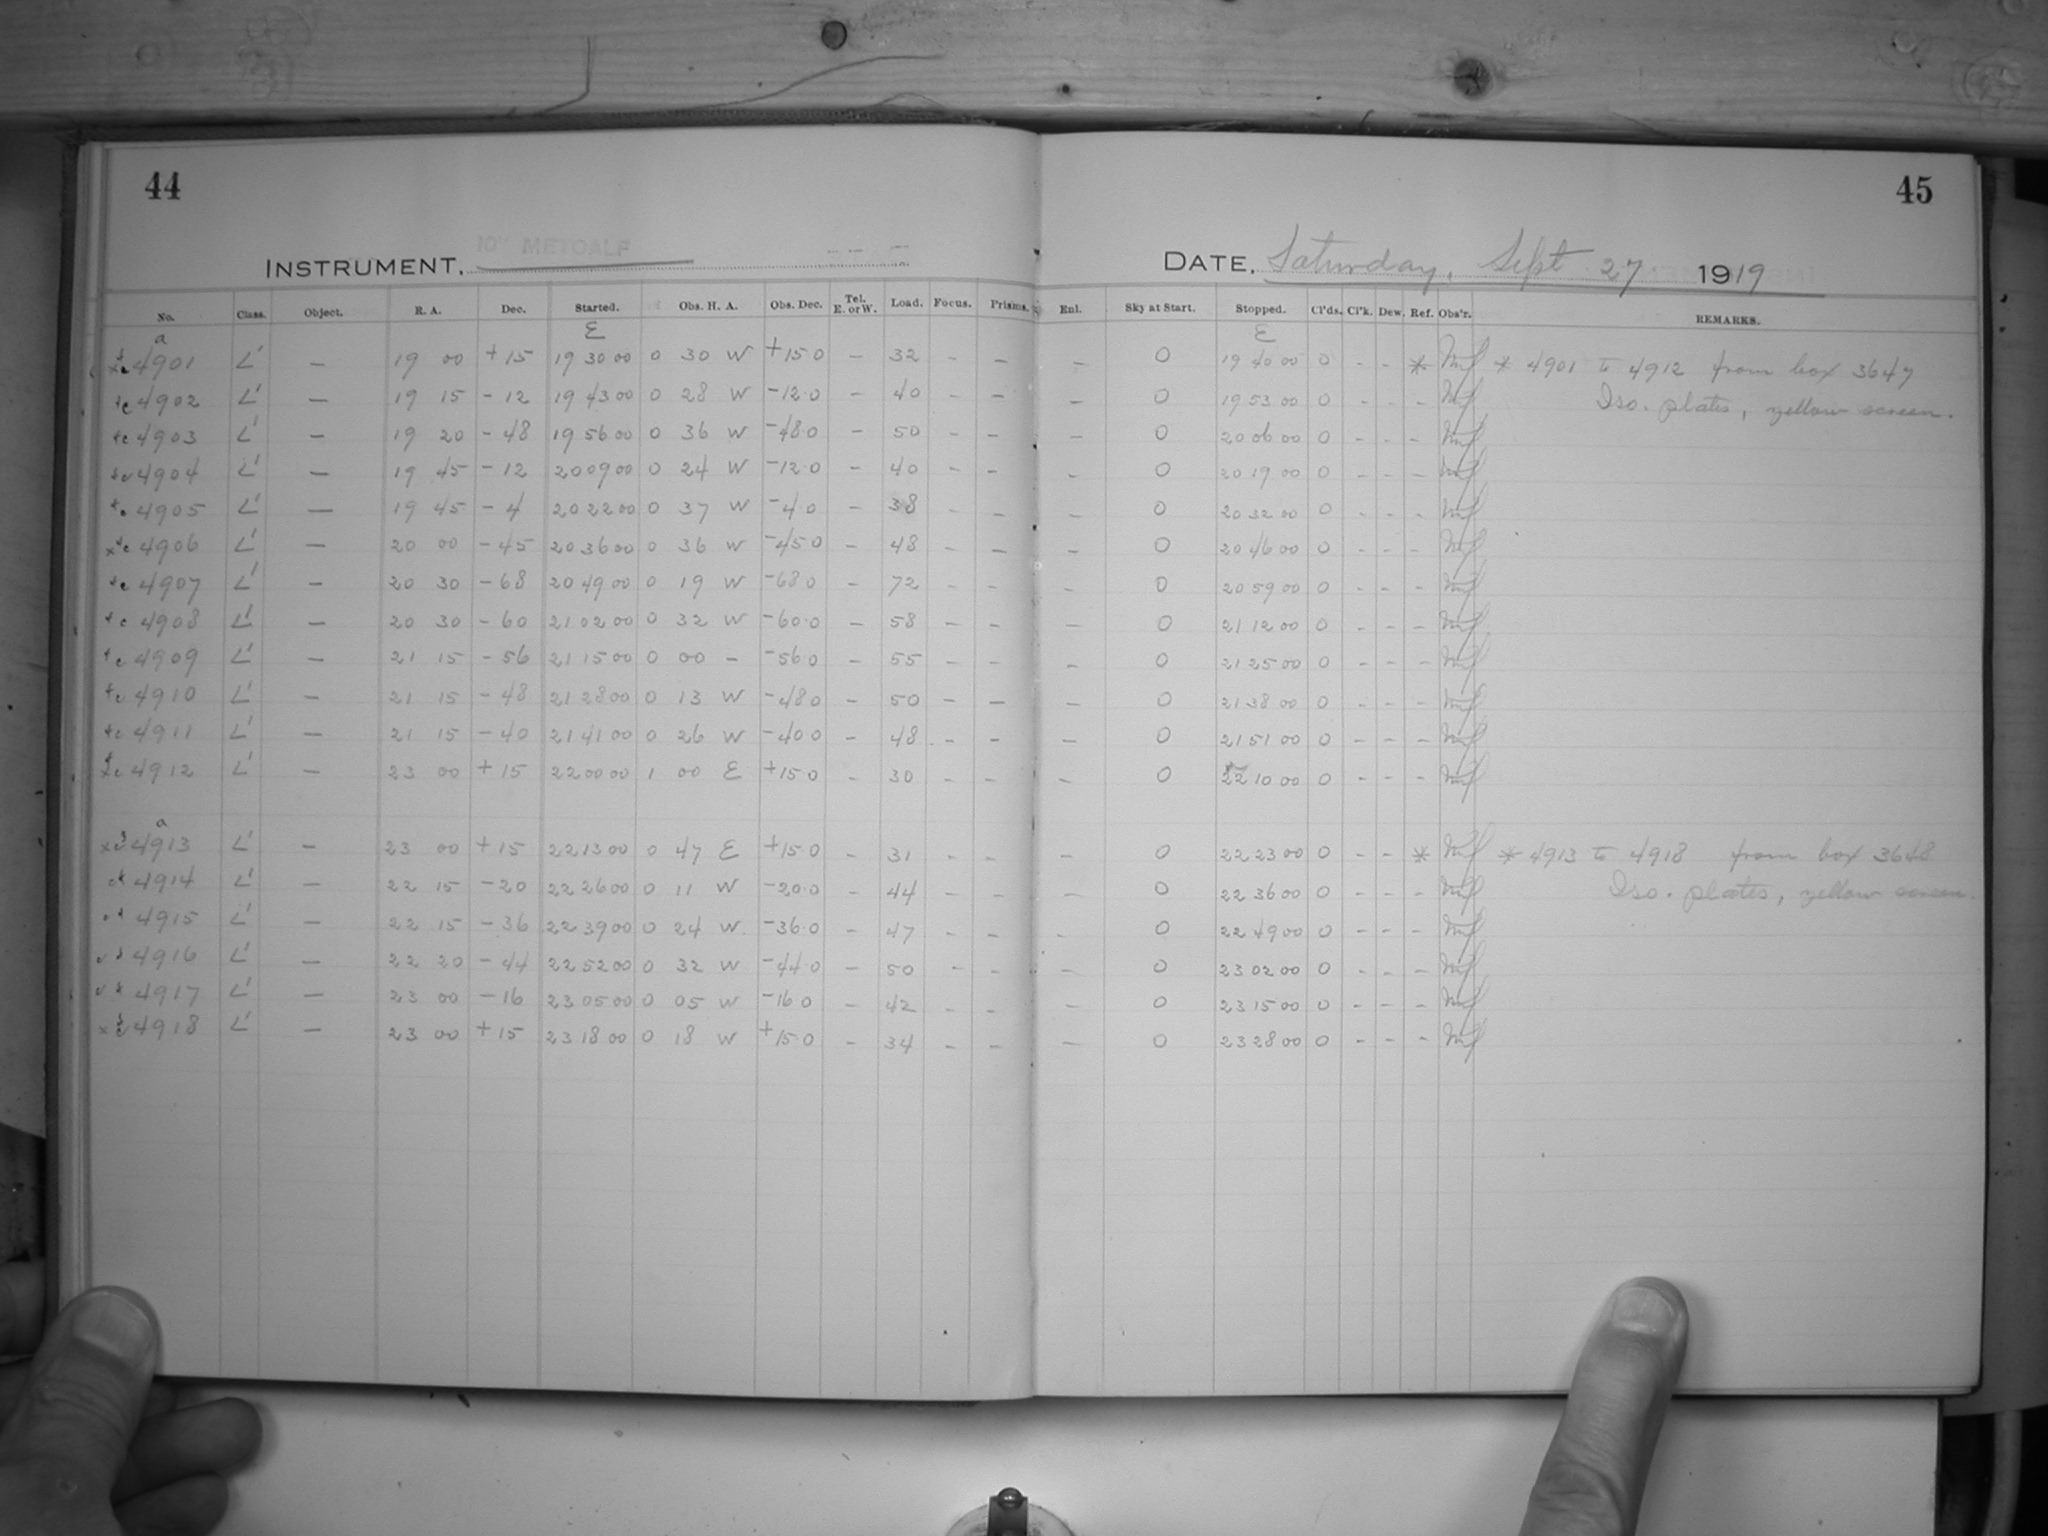 44
45
INSTRUMENT, 10" METCALF
DATE, Saturday, Sept 27 1919
No. Class. Object. R. A. Dec. Started. Obs. H. A. Obs. Dec. Tel. E. or W. Load. Focus. Prisms. Enl. Sky at Start. Stopped. Cl'ds. Cl'k. Dew. Ref. Obs'r. REMARKS.
a E E
4901 L' — 19 00 +15 19 30 00 0 30 W +15 0 – 32 – – – 0 19 40 00 0 – – * * 4901 to 4912 from box 3647
4902 L' — 19 15 -12 19 43 00 0 28 W -12 0 – 40 – – – 0 19 53 00 0 – – – Iso. plates, yellow screen.
4903 L' — 19 20 -48 19 56 00 0 36 W -48 0 – 50 – – – 0 20 06 00 0 – – –
4904 L' — 19 45 -12 20 09 00 0 24 W -12 0 – 40 – – – 0 20 19 00 0 – – –
4905 L' — 19 45 -4 20 22 00 0 37 W -4 0 – 38 – – – 0 20 32 00 0 – – –
4906 L' — 20 00 -45 20 36 00 0 36 W -45 0 – 48 – – – 0 20 46 00 0 – – –
4907 L' — 20 30 -68 20 49 00 0 19 W -68 0 – 72 – – – 0 20 59 00 0 – – –
4908 L' — 20 30 -60 21 02 00 0 32 W -60 0 – 58 – – – 0 21 12 00 0 – – –
4909 L' — 21 15 -56 21 15 00 0 00 – -56 0 – 55 – – – 0 21 25 00 0 – – –
4910 L' — 21 15 -48 21 28 00 0 13 W -48 0 – 50 – – – 0 21 38 00 0 – – –
4911 L' — 21 15 -40 21 41 00 0 26 W -40 0 – 48 – – – 0 21 51 00 0 – – –
4912 L' — 23 00 +15 22 00 00 1 00 E +15 0 – 30 – – – 0 22 10 00 0 – – –
a
4913 L' — 23 00 +15 22 13 00 0 47 E +15 0 – 31 – – – 0 22 23 00 0 – – * * 4913 to 4918 from box 3648
4914 L' — 22 15 -20 22 26 00 0 11 W -20 0 – 44 – – – 0 22 36 00 0 – – – Iso. plates, yellow screen.
4915 L' — 22 15 -36 22 39 00 0 24 W -36 0 – 47 – – – 0 22 49 00 0 – – –
4916 L' — 22 20 -44 22 52 00 0 32 W -44 0 – 50 – – – 0 23 02 00 0 – – –
4917 L' — 23 00 -16 23 05 00 0 05 W -16 0 – 42 – – – 0 23 15 00 0 – – –
4918 L' — 23 00 +15 23 18 00 0 18 W +15 0 – 34 – – – 0 23 28 00 0 – – –